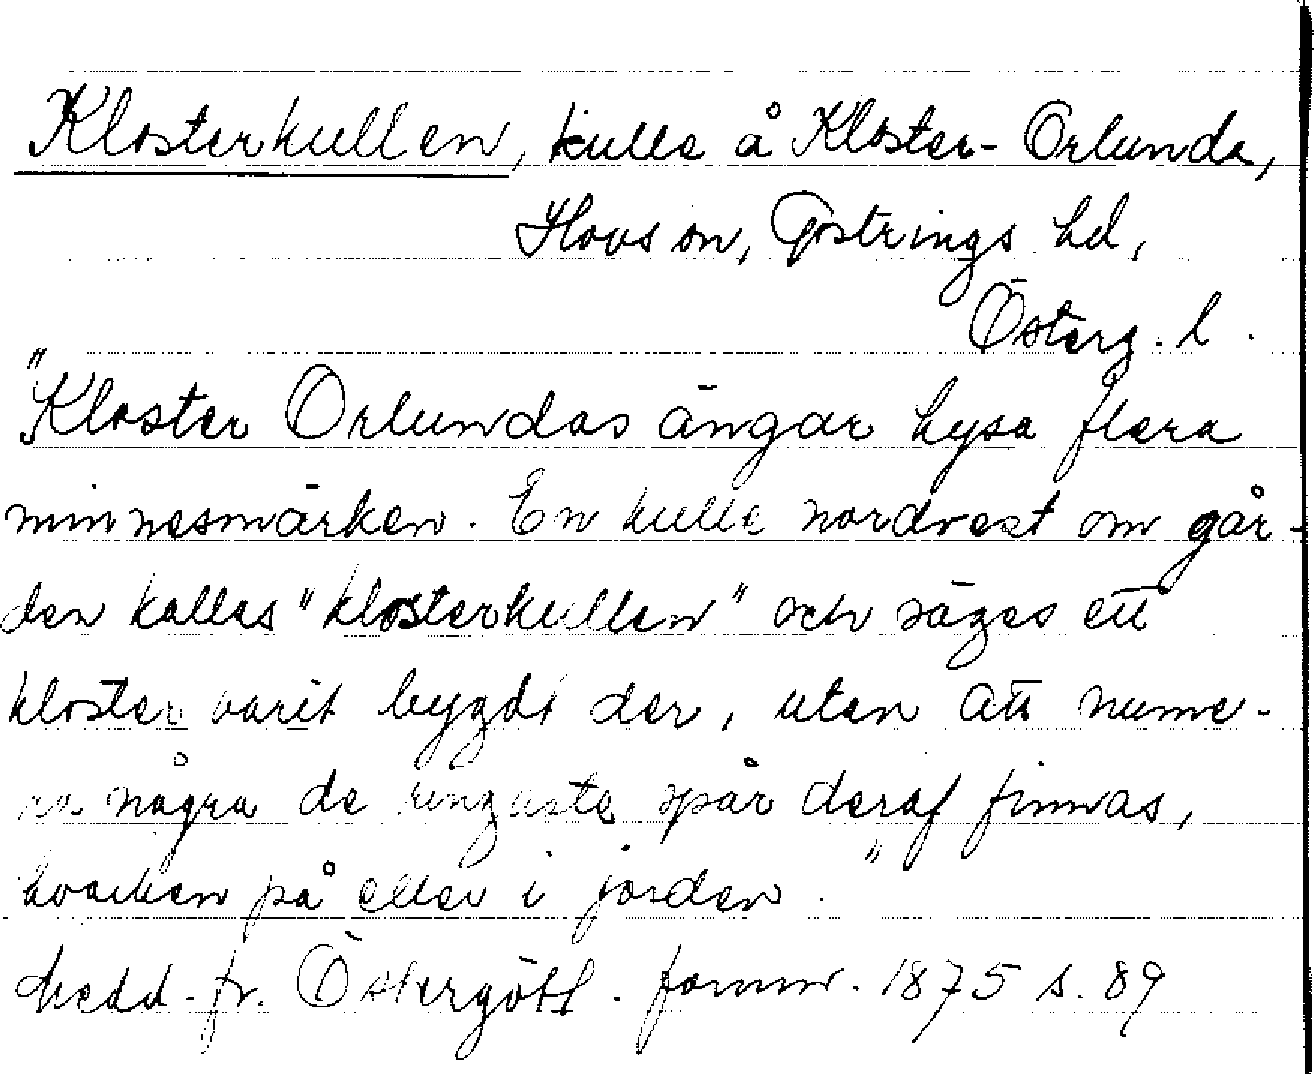 Klosterkullen, kulle å Kloster-Orlunda,
Hovs sn, Göstrings hd,
Österg. l.
"Kloster Orlundas ängar hysa flera
minnesmärken. En kulle nordvest om går-
den kallas "klosterkullen" och säges ett
kloster varit bygdt der, utan att nume-
ra några de ringaste spår deraf finnas,
hvarken på eller i jorden."
Medd. fr. Östergötl. fornm. 1875 s. 89